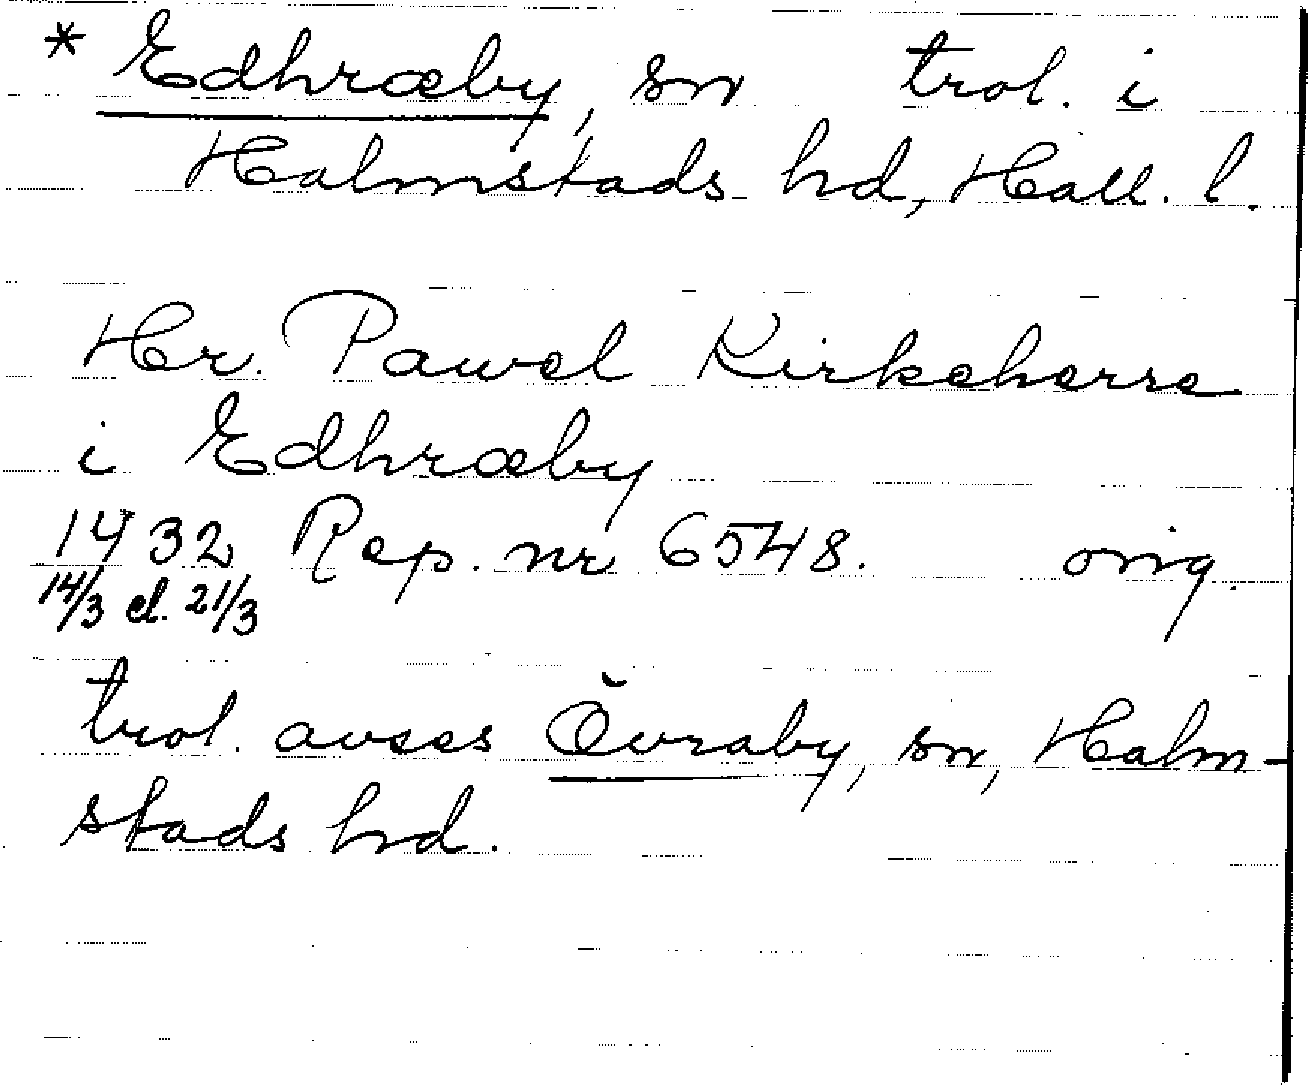 * Edhræby, sn trol. i
Halmstads hd, Hall. l.
Hr. Pawel Kirkeherre
i Edhræby
1432 Rep. nr 6548. orig.
14/3 el. 21/3
trol. avses Övraby, sn, Halm-
stads hd.